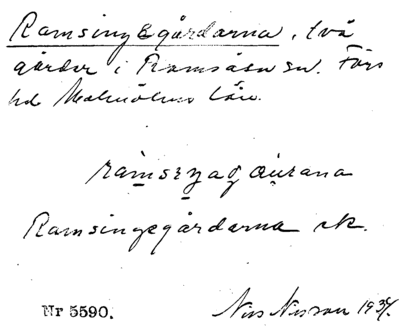 Ramsingegårdarna, två
gårdar i Ramsåsa sn. Färs
hd Malmöhus län.
Ramsingegårdarna ek.
Nr 5590. Nils Nilsson 1937.